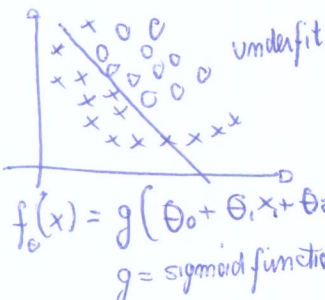 underfit
f_θ(x) = g(θ₀ + θ₁x₁ + θ
g = sigmoid functio